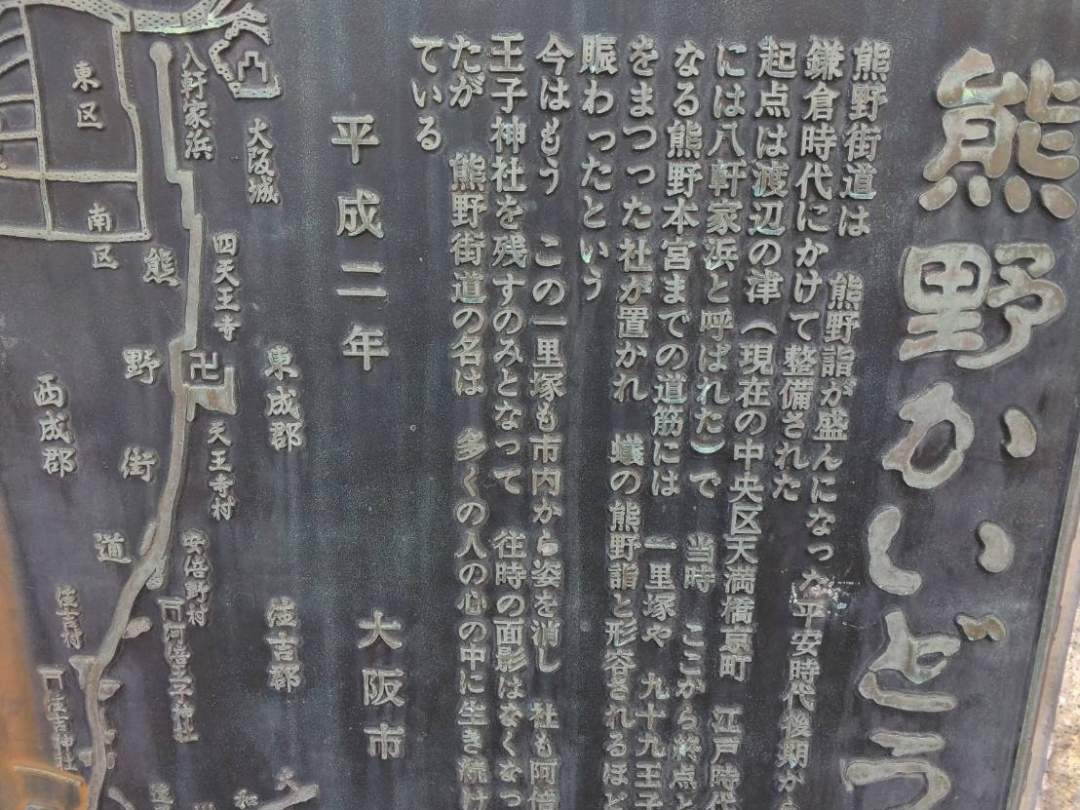 熊野かいどう
熊野街道は 熊野詣が盛んになった平安時代後期か
鎌倉時代にかけて整備された
起点は渡辺の津(現在の中央区天満橋京町 江戸時代
には八軒家浜と呼ばれた)で 当時 ここから終点と
なる熊野本宮までの道筋には 一里塚や 九十九王子
をまつった社が置かれ 蟻の熊野詣と形容されるほど
賑わったという
今はもう この一里塚も市内から姿を消し 社も阿倍
王子神社を残すのみとなって 往時の面影はなくなっ
たが 熊野街道の名は 多くの人の心の中に生き続け
ている
平成二年 大阪市
大阪城
八軒家浜
東区
南区
四天王寺
熊野街道
東成郡
西成郡
天王寺村
安倍野村
阿倍王子神社
住吉郡
住吉村
住吉神社